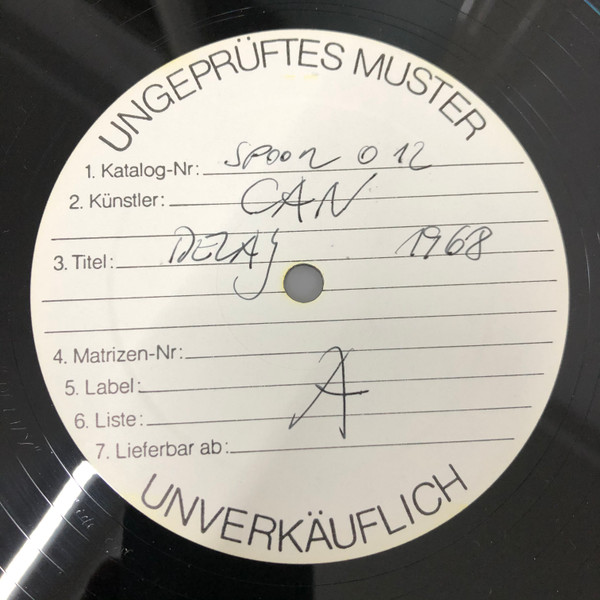 UNGEPRÜFTES MUSTER
1. Katalog-Nr: SPOON 012
2. Künstler: CAN
3. Titel: DELAY 1968
4. Matrizen-Nr:
A
5. Label:
6. Liste:
7. Lieferbar ab:
UNVERKÄUFLICH